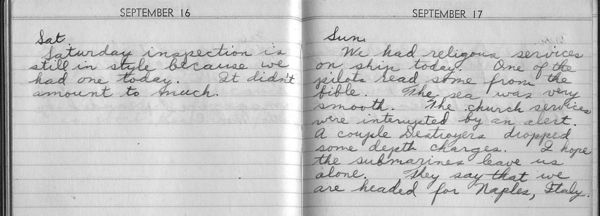 SEPTEMBER 16
Sat.
Saturday inspection is
still in style because we
had one today. It didn't
amount to much.
SEPTEMBER 17
Sun.
We had religous services
on ship today. One of the
pilots read some from the
bible. The sea was very
smooth. The church services
were interupted by an alert.
A couple Destroyers dropped
some depth charges. I hope
the submarines leave us
alone. They say that we
are headed for Naples, Italy.